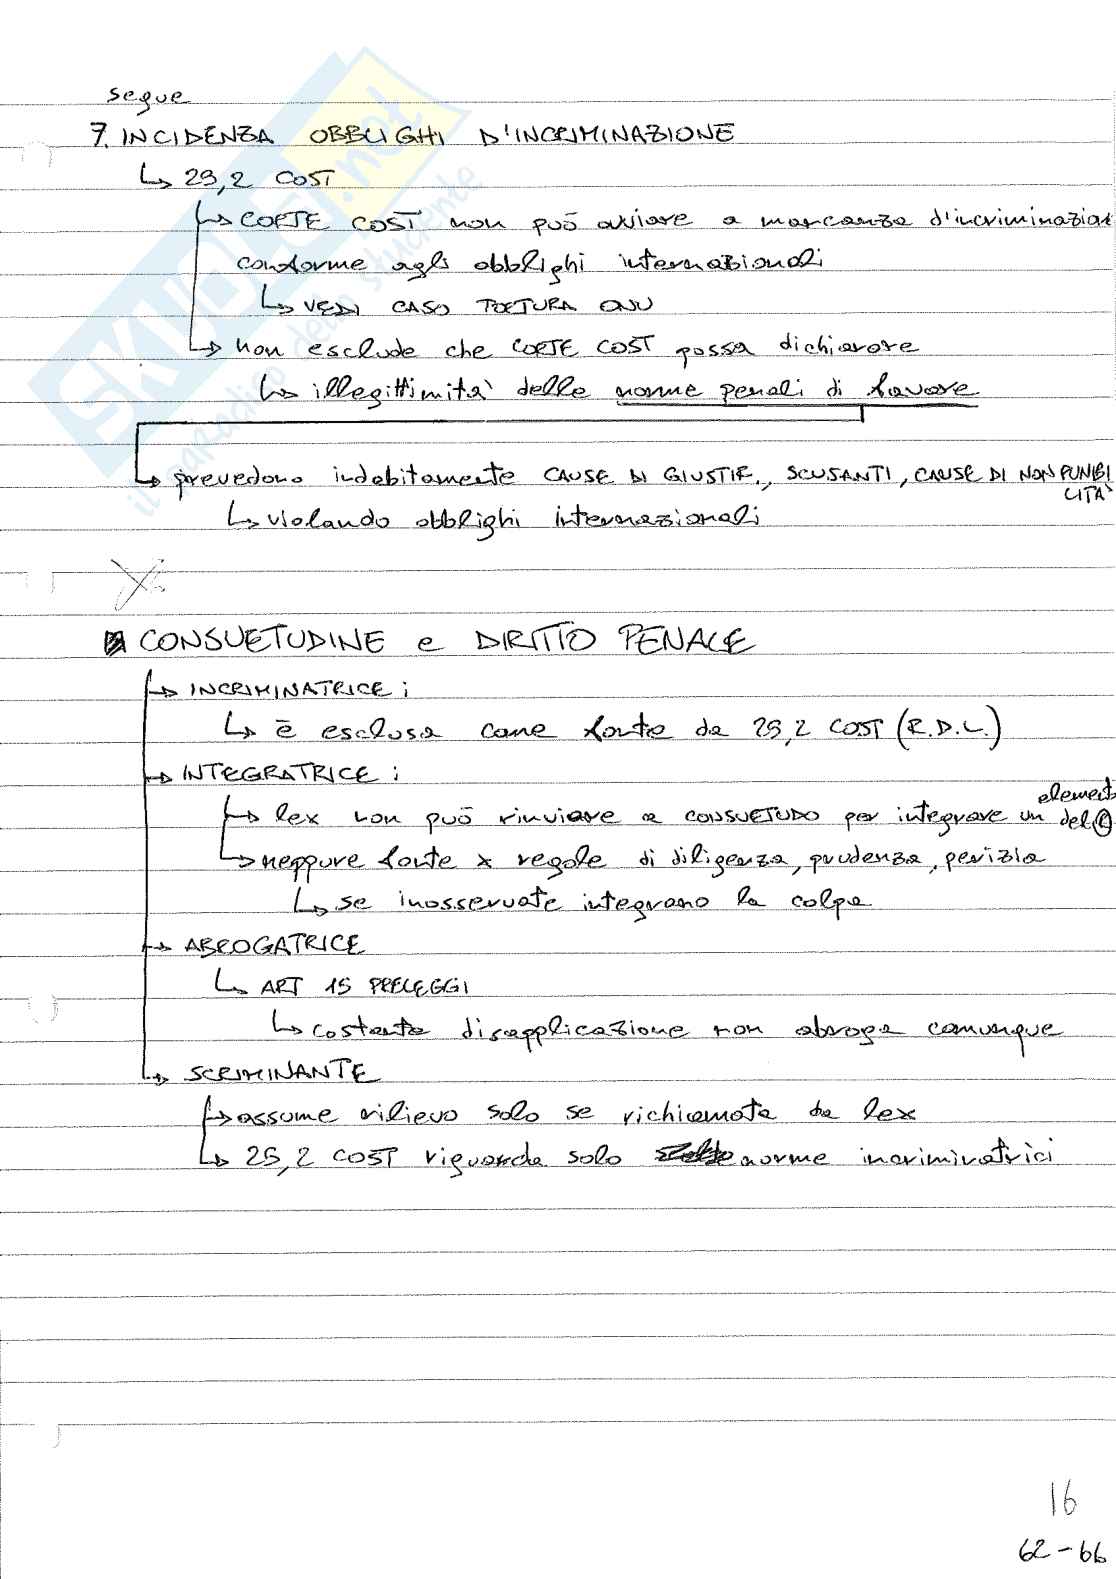 segue
7. INCIDENZA OBBLIGHI D'INCRIMINAZIONE
↳ 25,2 COST
↳ CORTE COST non può ovviare a mancanza d'incriminazion
conforme agli obblighi internazionali
↳ VEDI CASO TORTURA ONU
↳ non esclude che CORTE COST possa dichiarare
↳ illegittimità delle norme penali di favore
↳ prevedono indebitamente CAUSE DI GIUSTIF., SCUSANTI, CAUSE DI NON PUNIBI
LITÀ
↳ violando obblighi internazionali
CONSUETUDINE e DIRITTO PENALE
↳ INCRIMINATRICE:
↳ è esclusa come fonte da 25,2 COST (R.D.L.)
↳ INTEGRATRICE:
↳ lex non può rinviare a CONSUETUDO per integrare un element
del R
↳ neppure fonte x regole di diligenza, prudenza, perizia
↳ se inosservate integrano la colpa
↳ ABROGATRICE
↳ ART 15 PRELEGGI
↳ costante disapplicazione non abroga comunque
↳ SCRIMINANTE
↳ assume rilievo solo se richiamata da lex
↳ 25,2 COST riguarda solo norme incriminatrici
16
62-66
SKUOLA.net
il paradiso dello studente